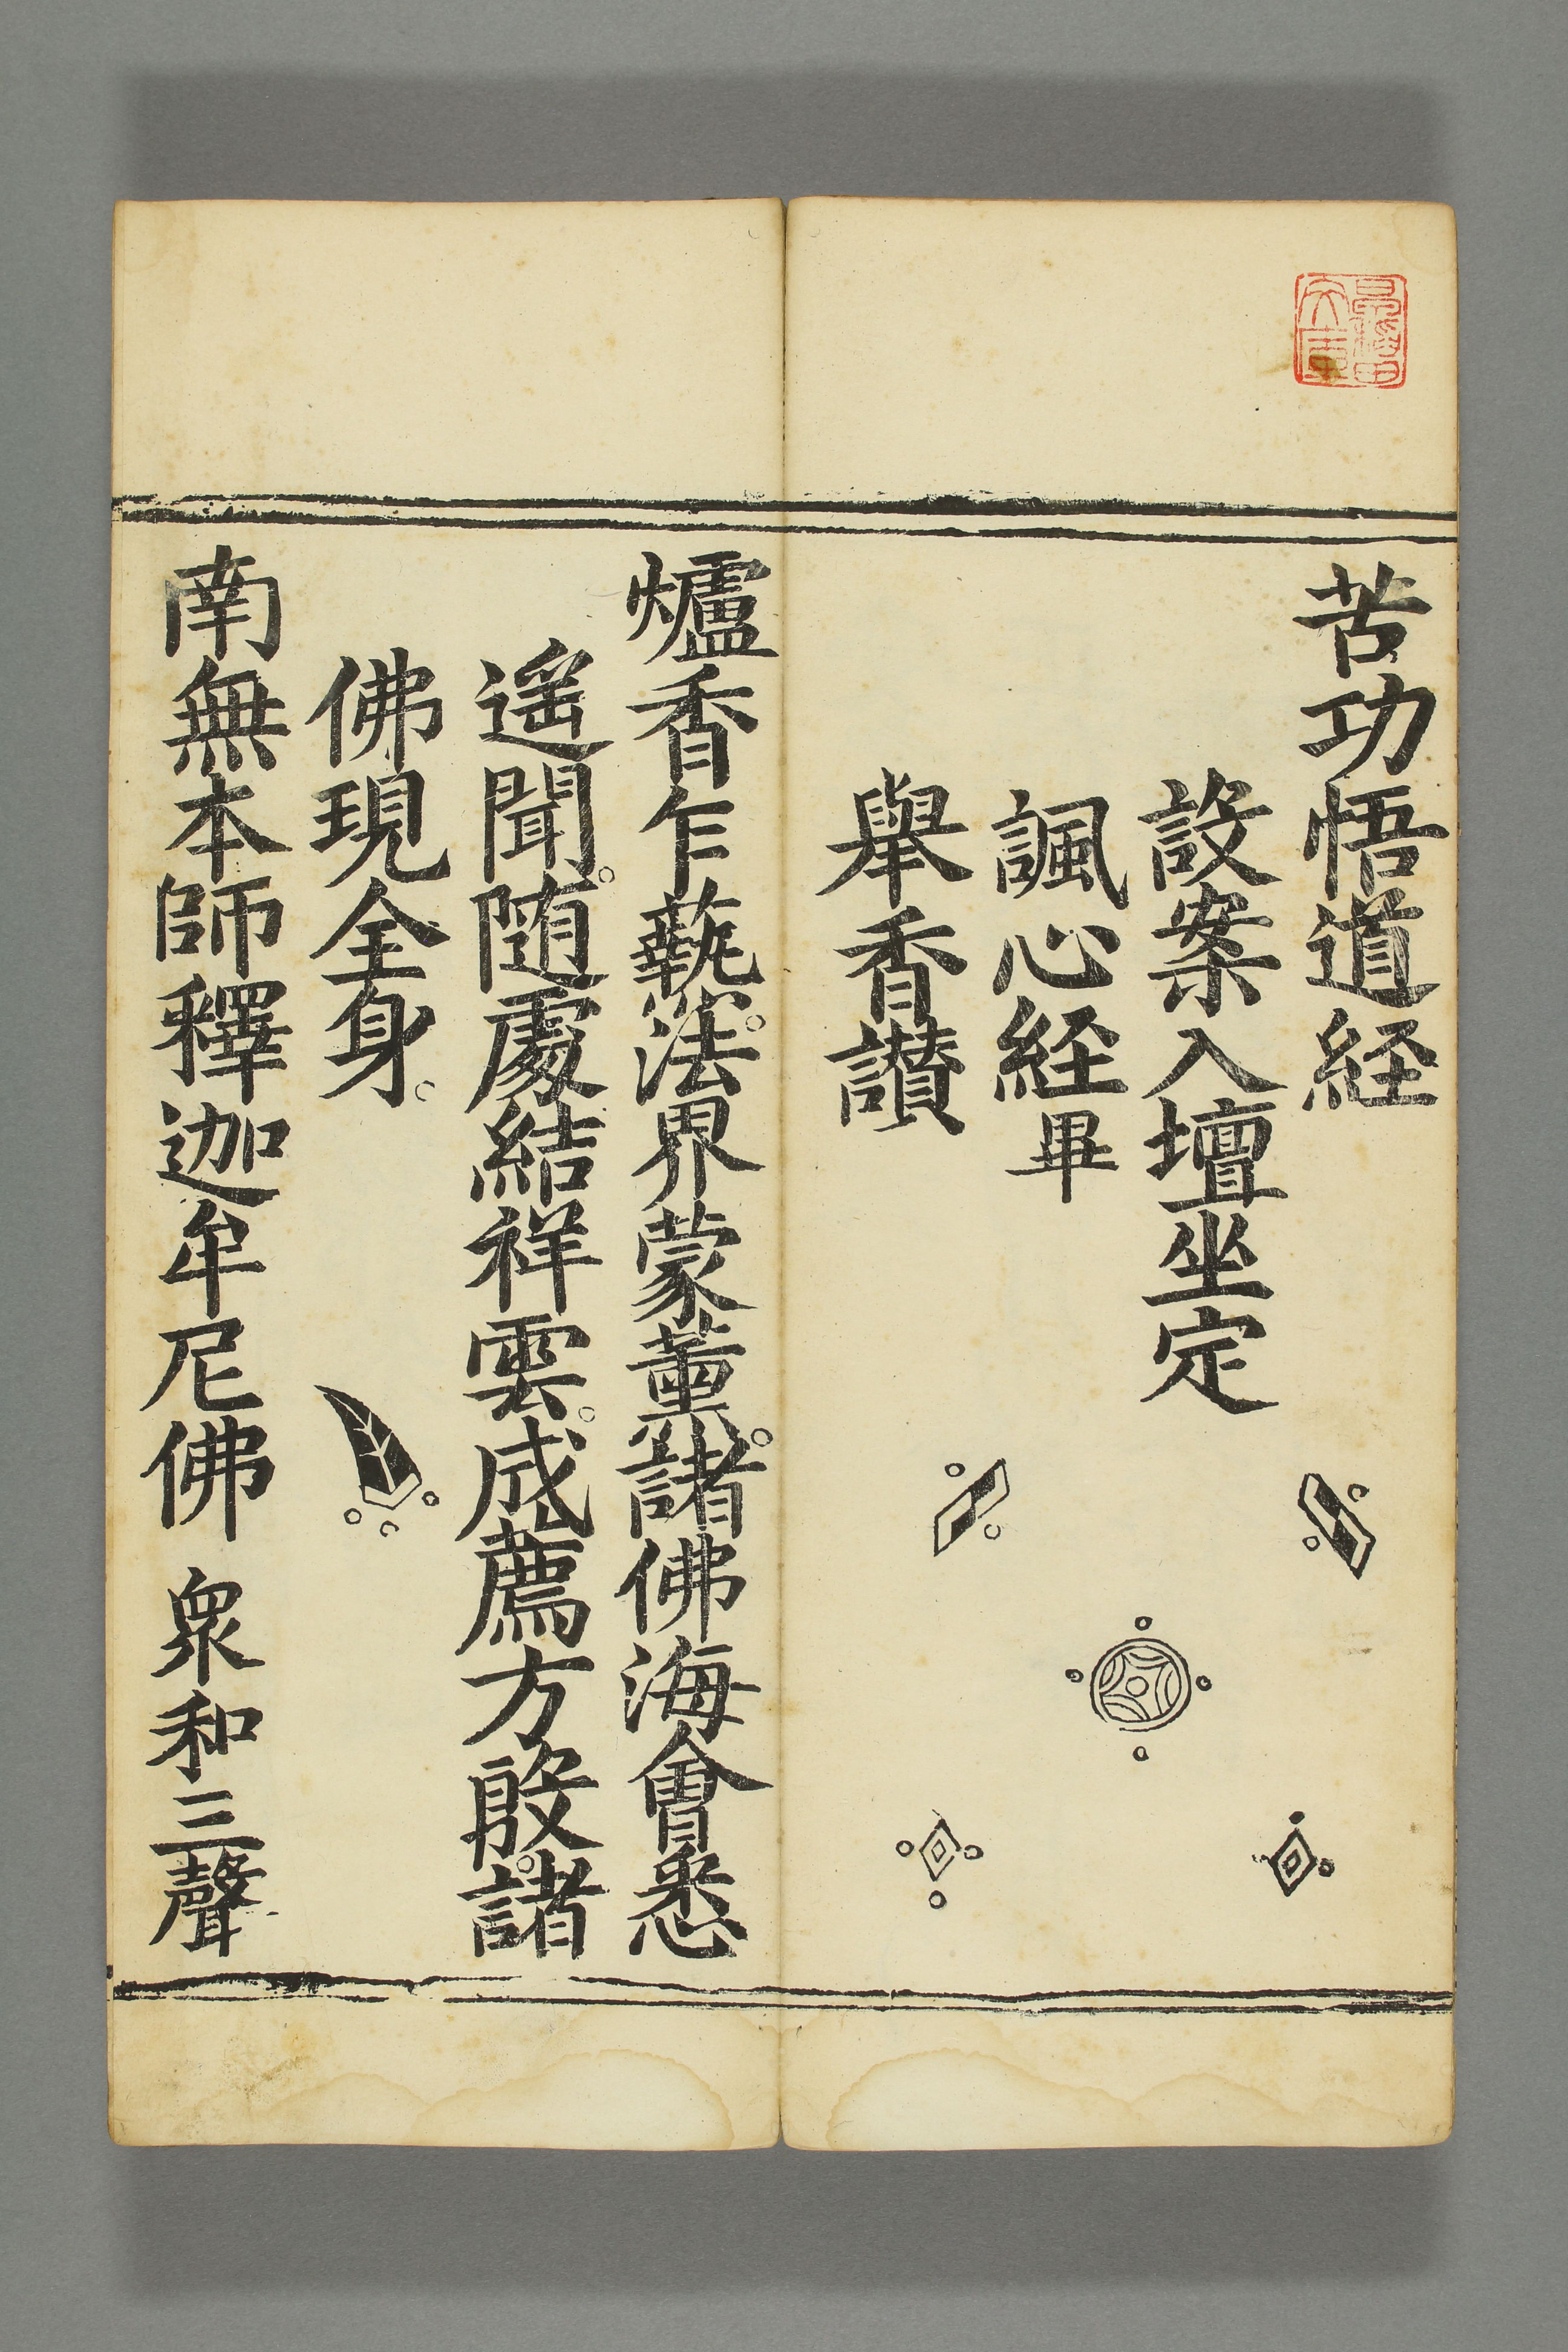 苦功悟道経
設案入壇坐定
諷心経畢
舉香讃
爐香乍爇。法界蒙薰。諸佛海會悉
遥聞。随處結祥雲。成薦方殷。諸
佛現全身。
南無本師釋迦牟尼佛 衆和三聲